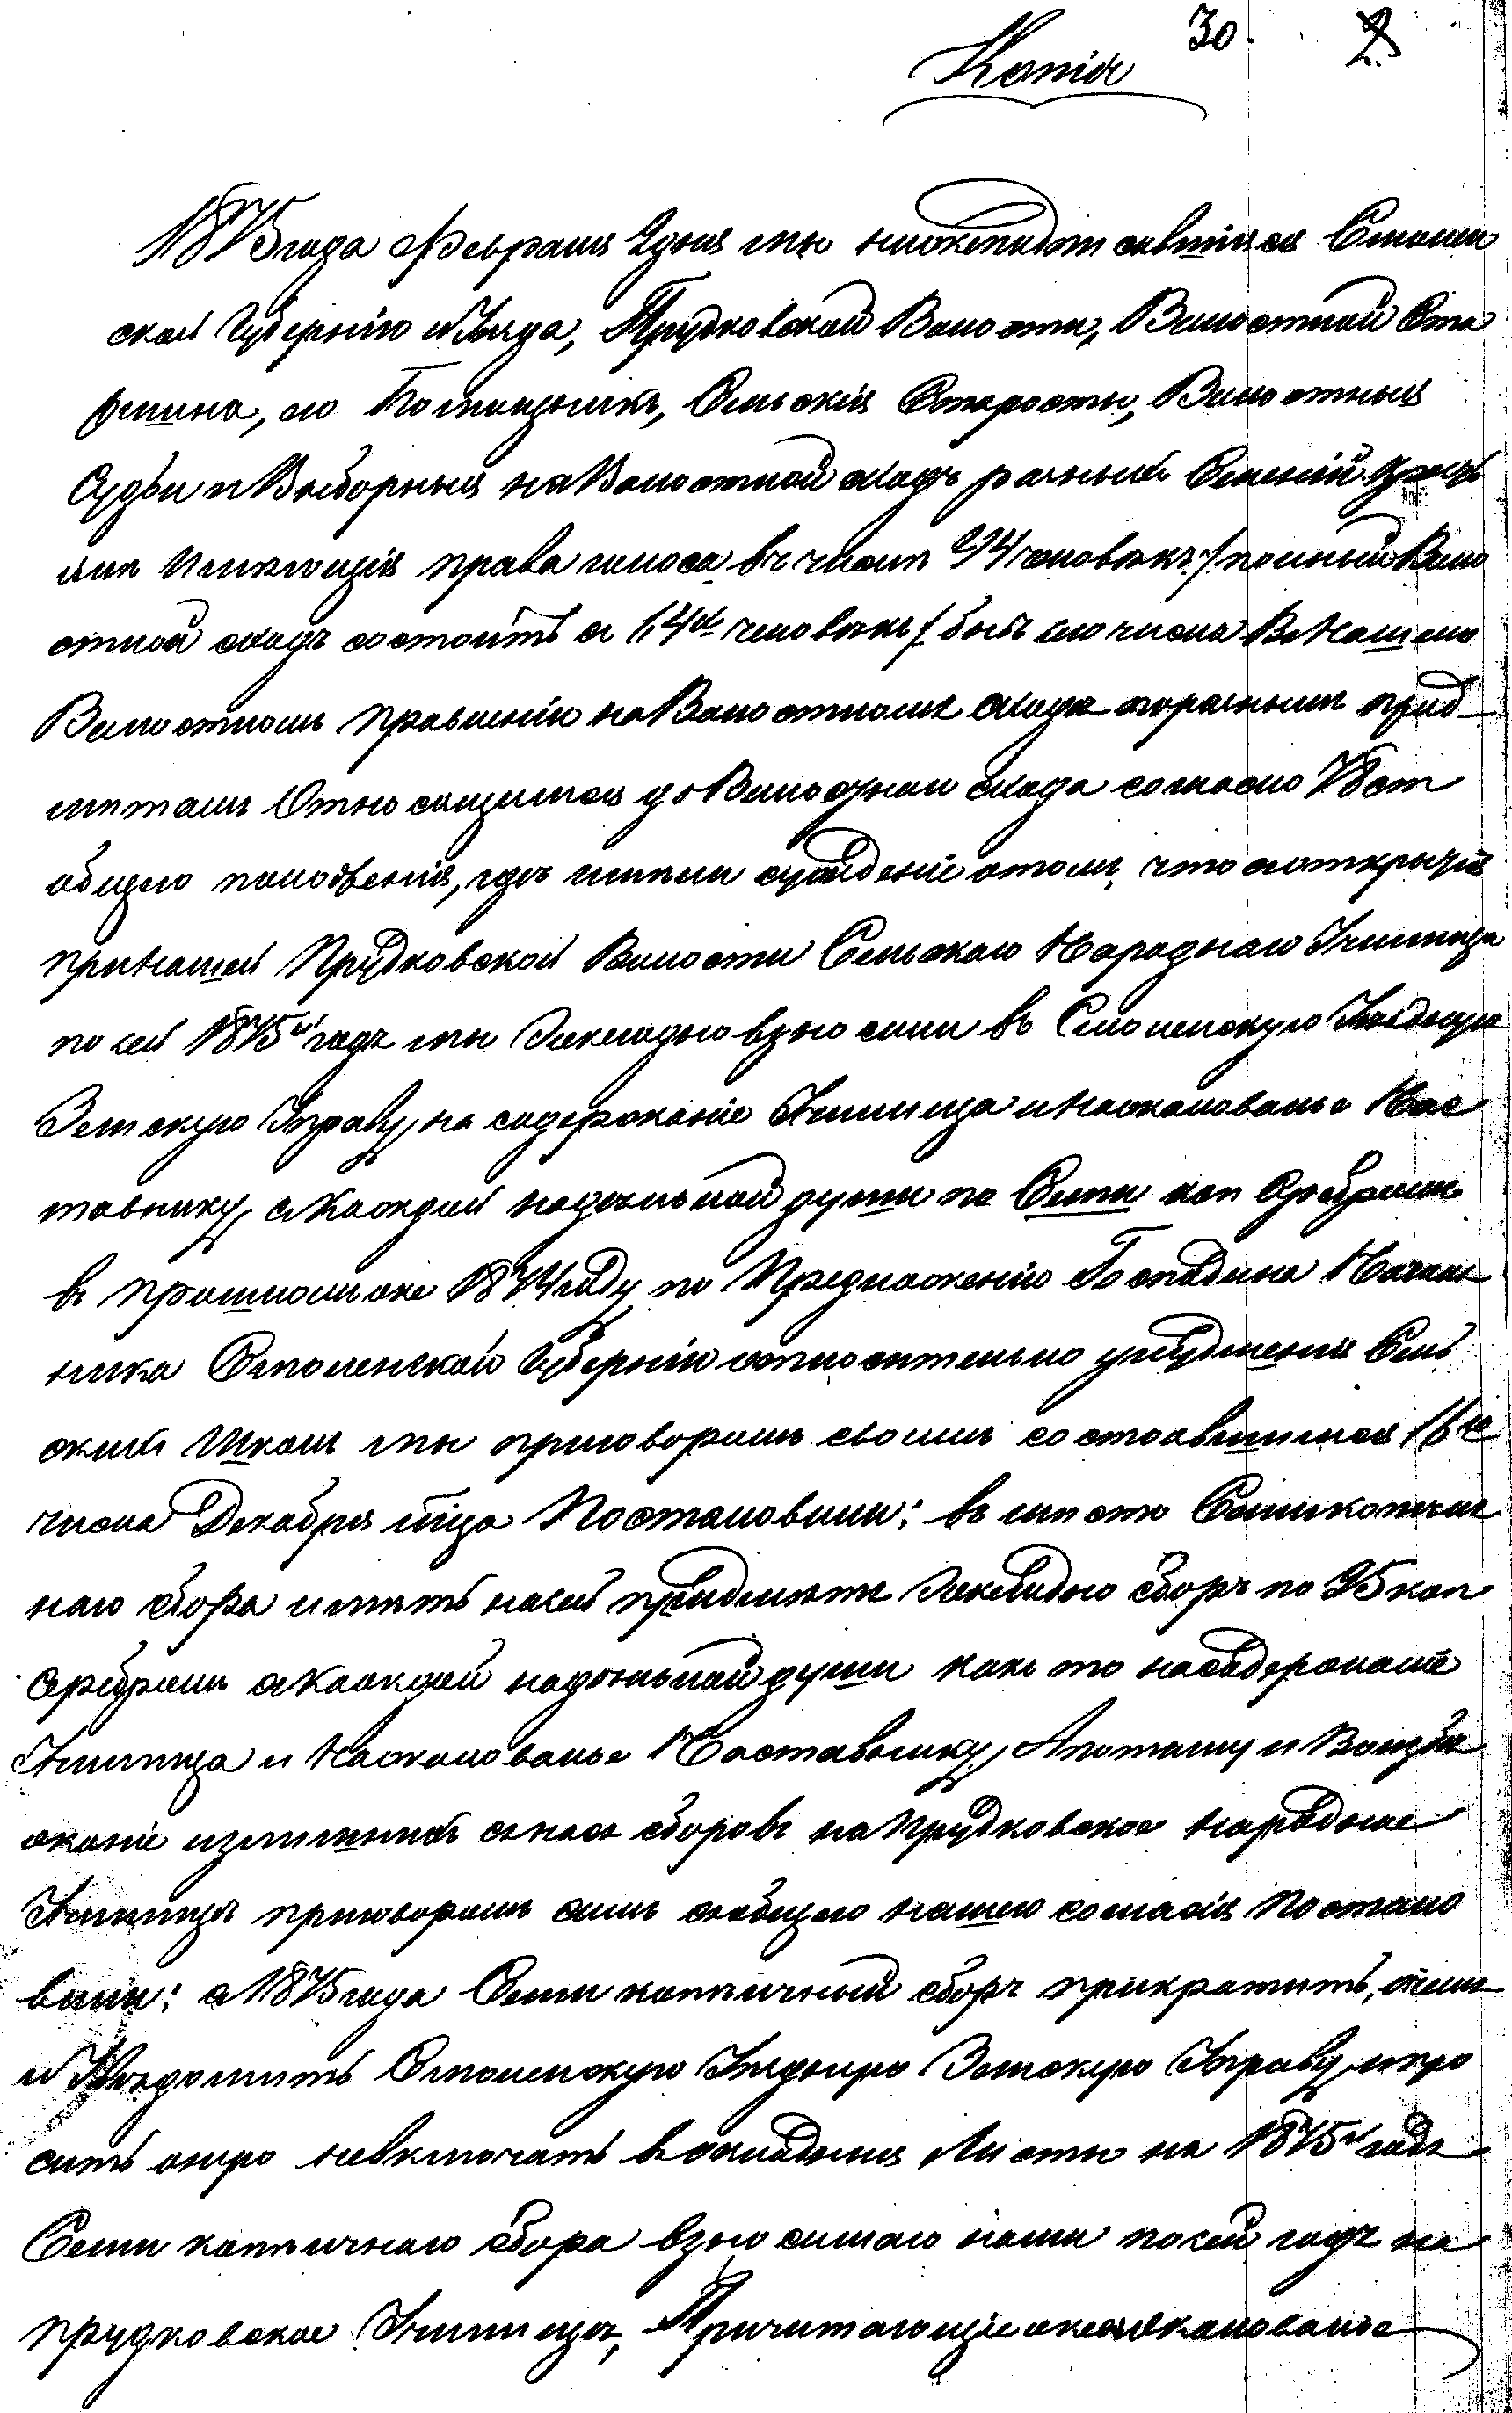 30.
Копія
1875 года Февраля 2 дня мы нижеподписавшіеся Смолен
ской Губерніи и Уѣзда, Прудковской Волости, Волостной Ста
ршина, его Помощникъ, Сельскія Старосты, Волостныя
Судьи и Выборныя на Волостной сходъ разныхъ Селеній
имѣющія права голоса въ числѣ 94 человѣкъ /полный Воло
стной сходъ состоитъ съ 142 человѣкъ/ бывъ сего числа въ Нашемъ
Волостномъ правленіи на Волостномъ сходѣ поразнымъ пред
метамъ Относящимся до Волостнаго схода согласно 78 ст
общаго положенія, гдѣ имѣли сужденіе о томъ, что съ открытія
при нашей Прудковской Волости Сельскаго Народнаго Училища
по сей 1875й годъ мы Ежегодно взносили въ Смоленскую Уѣздную
Земскую Управу на содержаніе Училища и на жалованье Нас
тавнику с каждой надѣльной души по Семи коп Серебромъ
въ прошломъ же 1874 году по Предложенію Господина Началь
ника Смоленской Губерніи относительно улучшенія Сель
скихъ Школъ мы приговоромъ своимъ состоявшимся 16го
числа Декабря мѣсяца Постановили: въ мѣсто Семикопѣеч
наго сбора имѣть на сей предметъ Ежегодно сборъ по 25 коп
Серебромъ с каждой надѣльной души какъ то на содержаніе
Училища и На жалованье Наставнику, А потому и Воизбѣ
жаніе излишнихъ с насъ сборовъ на Прудковское Народное
Училище приговоромъ симъ с общаго нашего согласія Постано
вили: с 1875 года Семи копѣечный сборъ прикратить, о чемъ
и Увѣдомить Смоленскую Уѣздную Земскую Управу и про
сить оную невключать в окладныя Листы на 1875й годъ
Семи копѣечнаго сбора взносимаго нами по сей годъ на
прудковское Училище, Причитающіеся же на жалованье